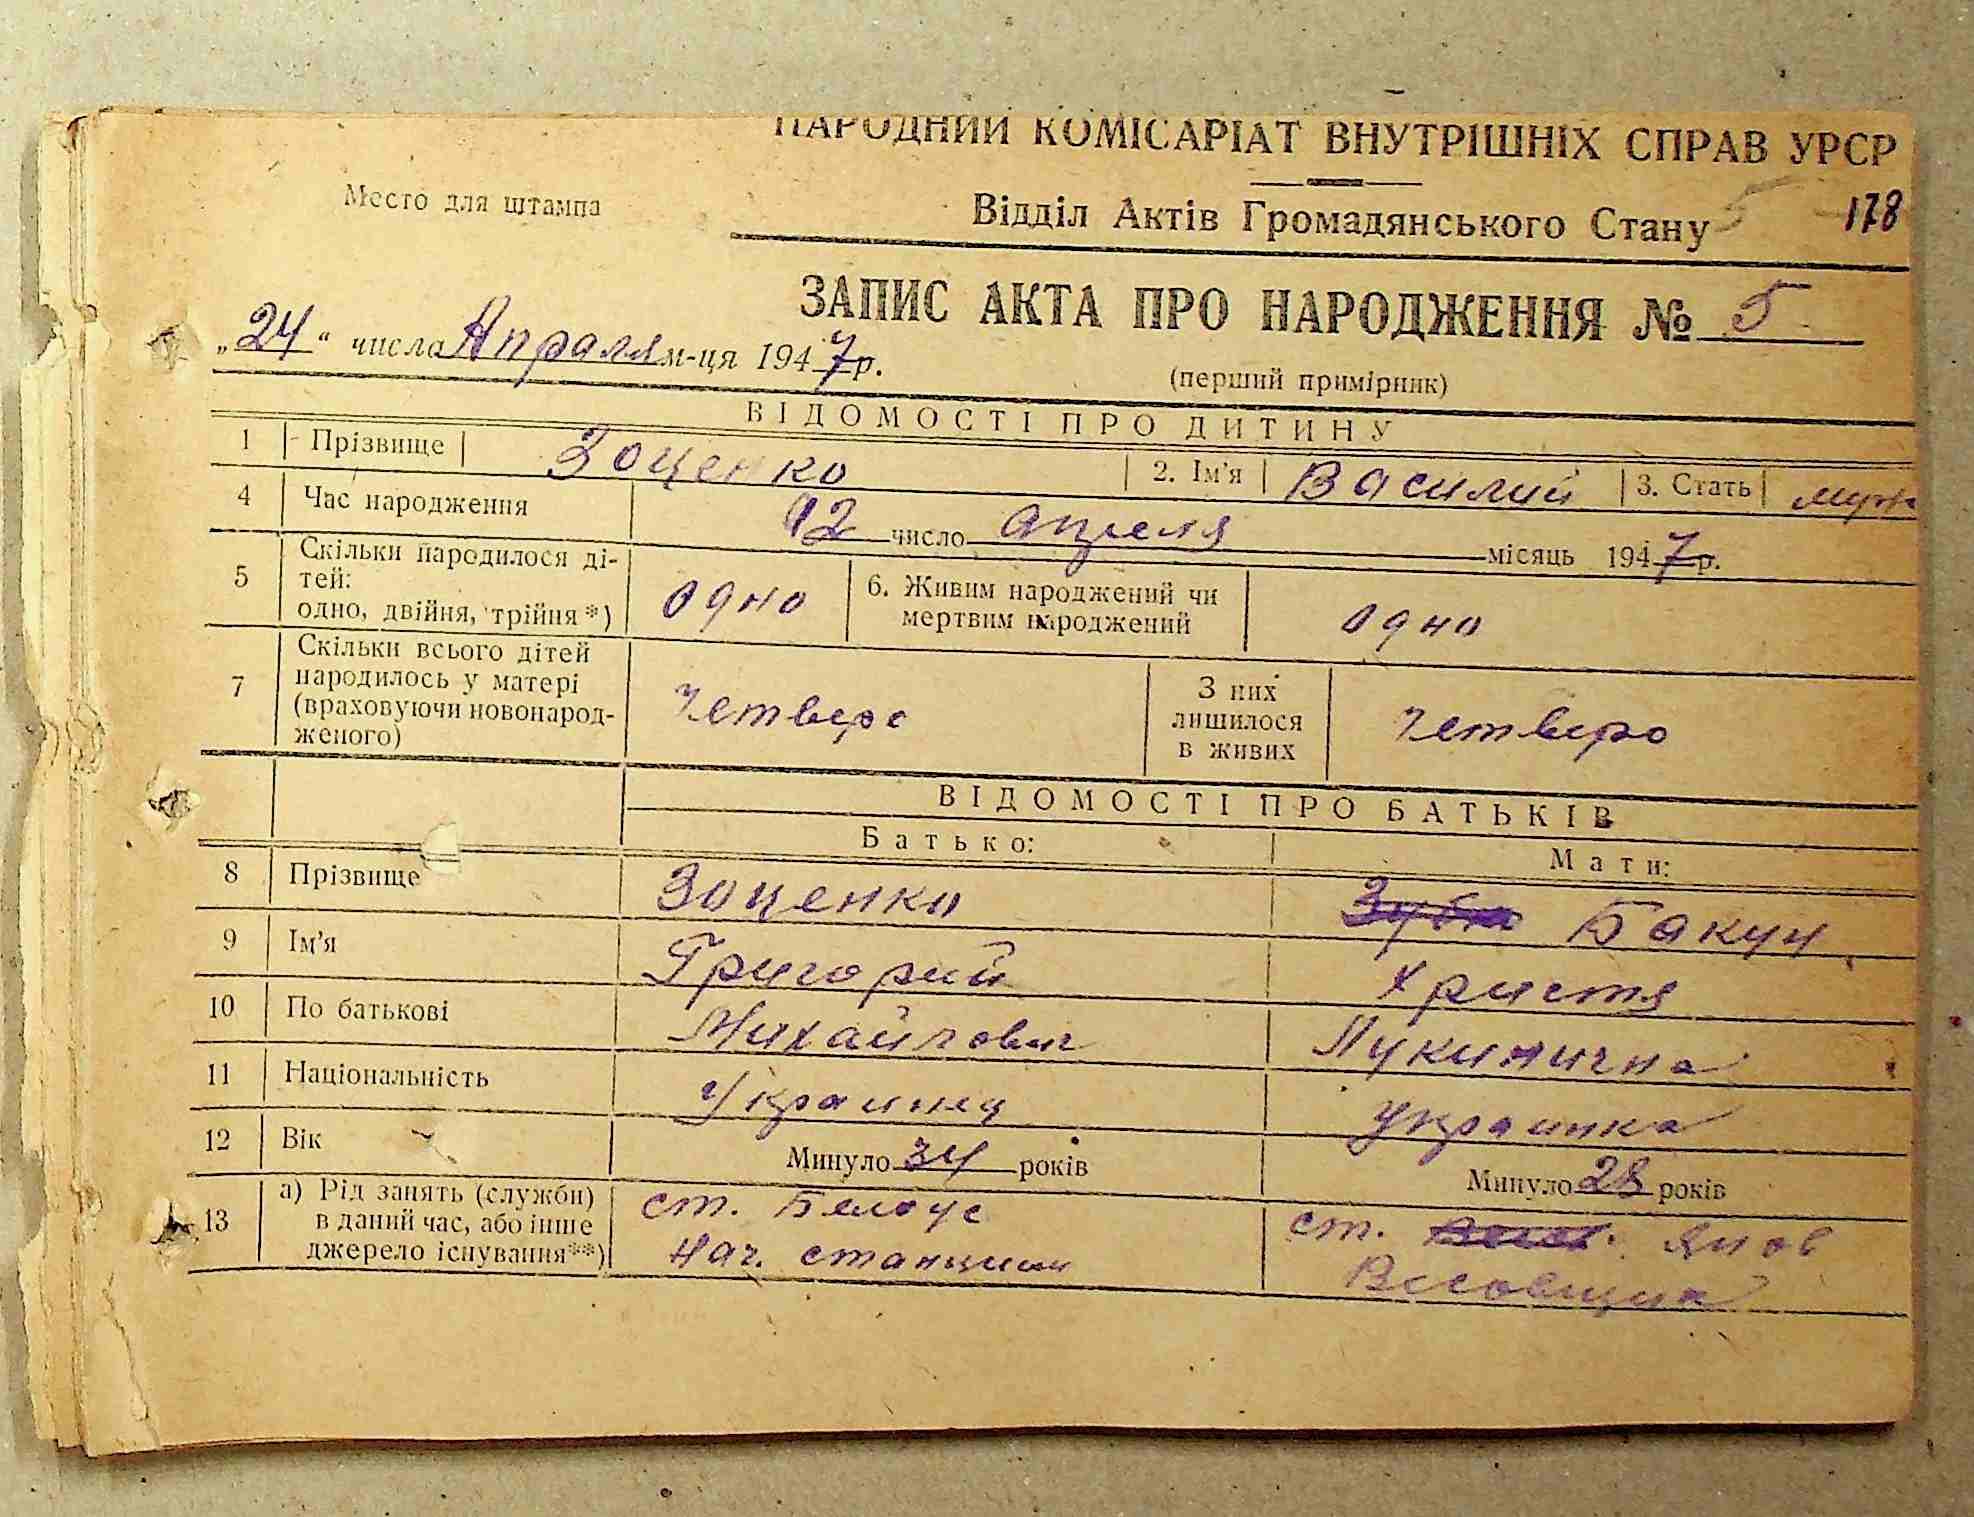 НАРОДНИЙ КОМІСАРІАТ ВНУТРІШНІХ СПРАВ УРСР
Место для штампа
Відділ Актів Громадянського Стану 5 178
ЗАПИС АКТА ПРО НАРОДЖЕННЯ № 5
„24“ числа Апраля м-ця 1947 р.
(перший примірник)
ВІДОМОСТІ ПРО ДИТИНУ
1 Прізвище Зоценко 2. Ім'я Василий 3. Стать муж
4 Час народження 12 число апреля місяць 1947 р.
5 Скільки народилося ді-
тей:
одно, двійня, трійня*) одно
6. Живим народжений чи
мертвим народжений одно
7 Скільки всього дітей
народилось у матері
(враховуючи новонарод-
женого) четверо
З них
лишилося
в живих четверо
ВІДОМОСТІ ПРО БАТЬКІВ
Батько: Мати:
8 Прізвище Зоценко Бакун
9 Ім'я Григорий Христя
10 По батькові Михайлович Лукинична
11 Національність Украинец Украинка
12 Вік Минуло 34 років Минуло 28 років
13 а) Рід занять (служби)
в даний час, або інше
джерело існування**)
ст. Белоус
Нач. станции
ст. Янов
Весовщик